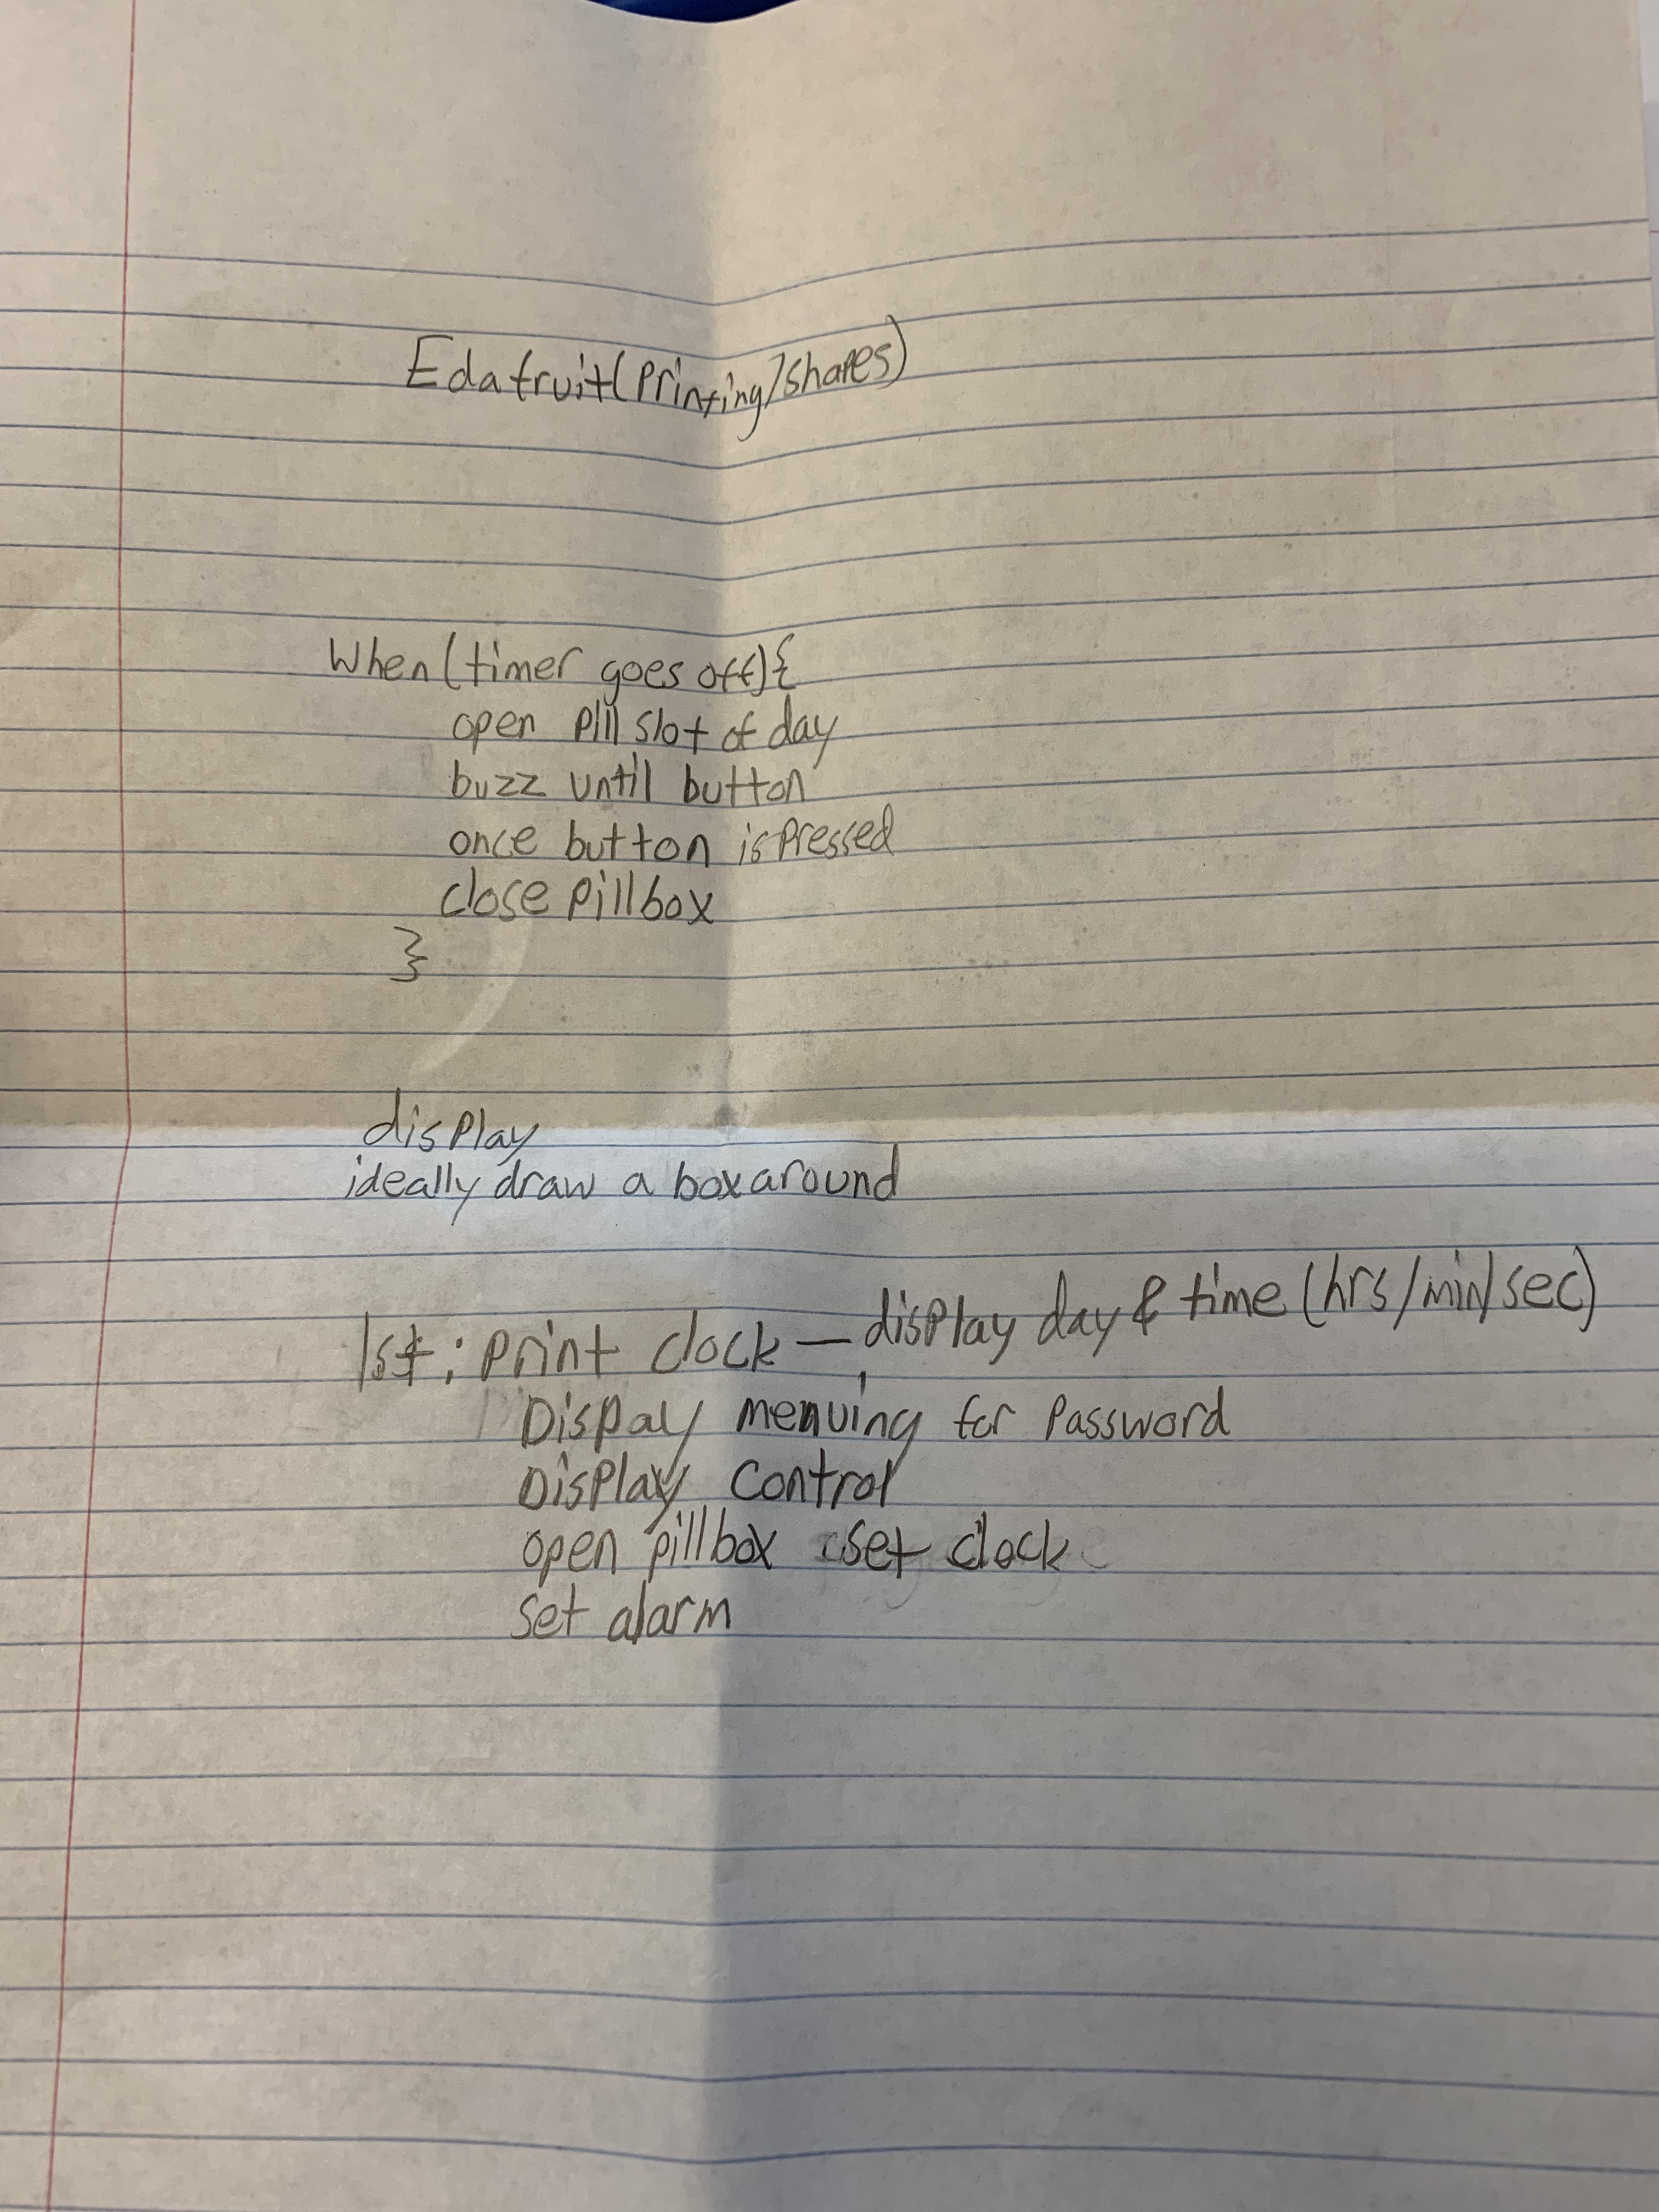 Edafruit(printing/shapes)
When(timer goes off){
open pill slot of day
buzz until button
once button is pressed
close pillbox
}
display
ideally draw a box around
1st: print clock — display day & time (hrs/min/sec)
Dispay menuing for password
Display control
open pillbox set clock
set alarm